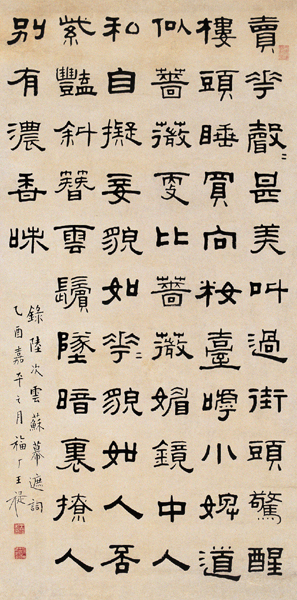 賣花聲〻甚美叫過街頭驚醒
樓頭睡買向妝臺嚀小婢道
似薔薇更比薔薇媚鏡中人
和自擬妾貌如花〻貌如人否
紫豔斜簪雲鬢墜暗裏撩人
別有濃香味
錄陸次雲蘇幕遮詞
乙酉嘉平之月福厂王禔